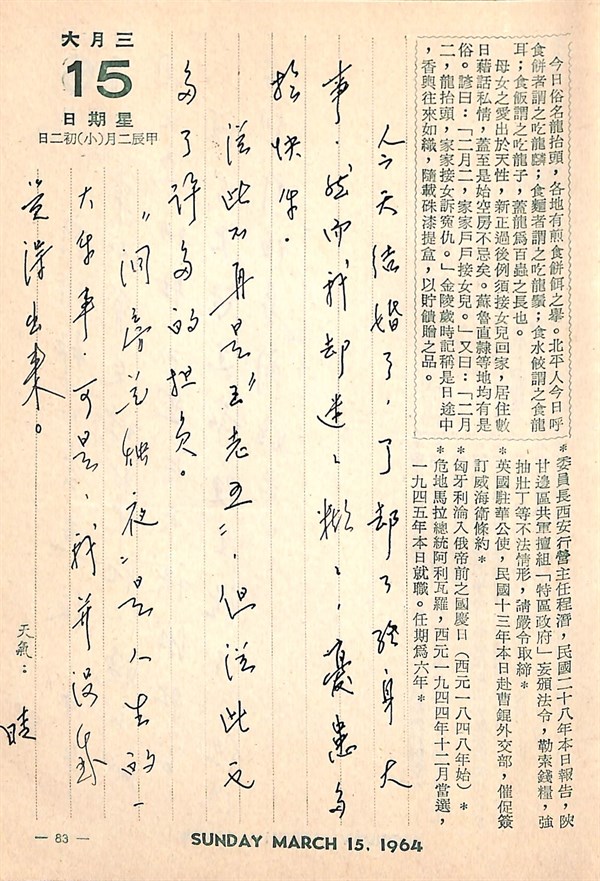 三月大
15
星期日
甲辰二月(小)初二日
今日俗名龍抬頭，各地有煎食餅餌之舉。北平人今日呼
食餅者謂之吃龍鱗；食麵者謂之吃龍鬚；食水餃謂之食龍
耳；食飯謂之吃龍子，蓋龍爲百蟲之長也。
母女之愛出於天性，新正過後例須接女兒回家，居住數
日藉話私情，蓋至是始空房不忌矣。蘇魯直隸等地均有是
俗。諺曰：「二月二，家家戶戶接女兒。」又曰：「二月
二，龍抬頭，家家接女訴寃仇。」金陵歲時記稱是日途中
，香輿往來如織，隨載硃漆提盒，以貯饋贈之品。
＊委員長西安行營主任程潛，民國二十八年本日報告，陝
甘邊區共軍擅組「特區政府」妄頒法令，勒索錢糧，強
抽壯丁等不法情形，請嚴令取締＊
＊英國駐華公使，民國十三年本日赴曹錕外交部，催促簽
訂威海衛條約＊
＊匈牙利淪入俄帝前之國慶日（西元一八四八年始）＊
＊危地馬拉總統阿利瓦羅，西元一九四四年十二月當選，
一九四五年本日就職。任期爲六年＊
今天結婚了，了却了終身大
事，然而我却迷迷糊糊，憂患多
於快樂。
從此不再是"王老五"，但從此也
多了許多的担負。
"洞房花燭夜"是人生的一
大樂事，可是，我並沒感
覺得出來。
天氣：
晴
— 83 —
SUNDAY MARCH 15, 1964